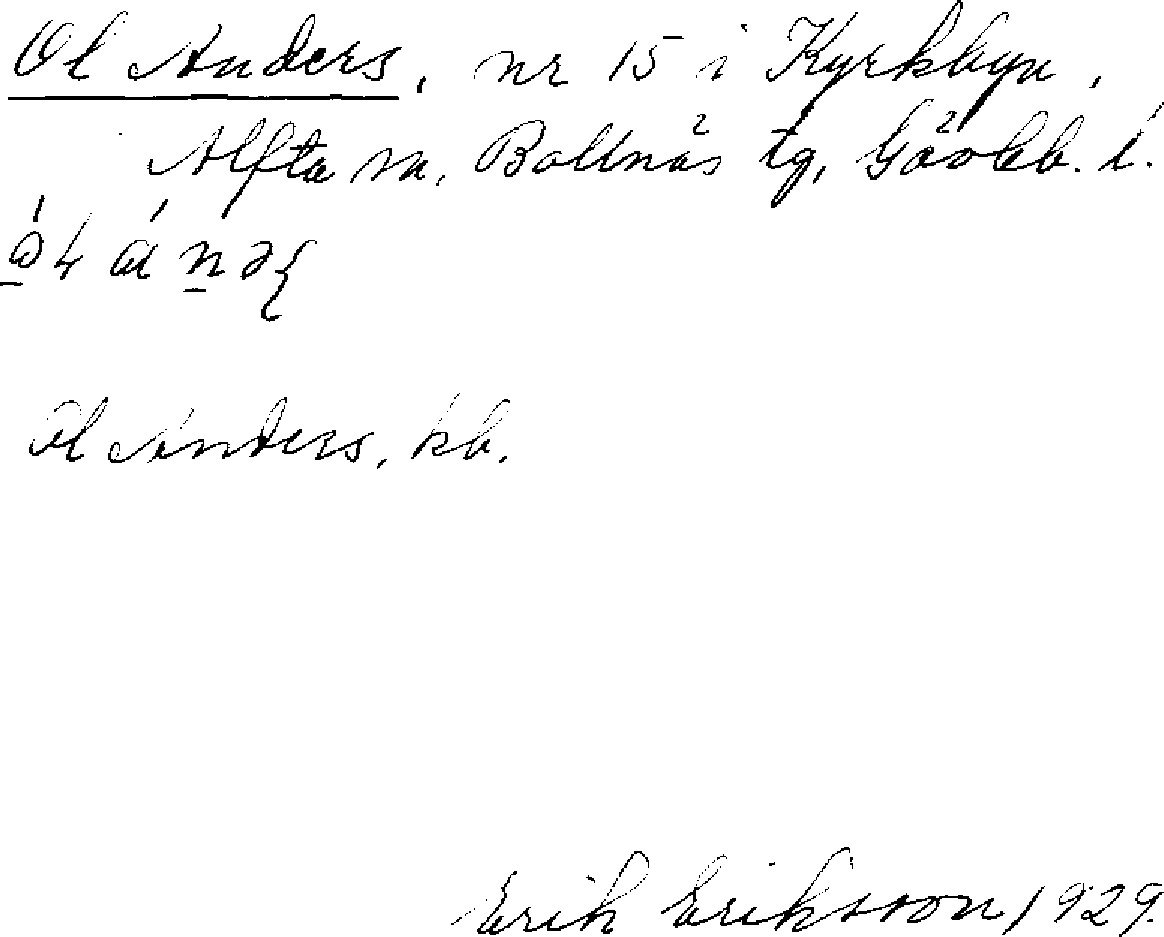 Ol Anders, nr 15 i Kyrkbyn,
Alfta sn, Bollnäs tg, Gävleb. l.
Ol Anders, kb.
Erik Eriksson 1929.